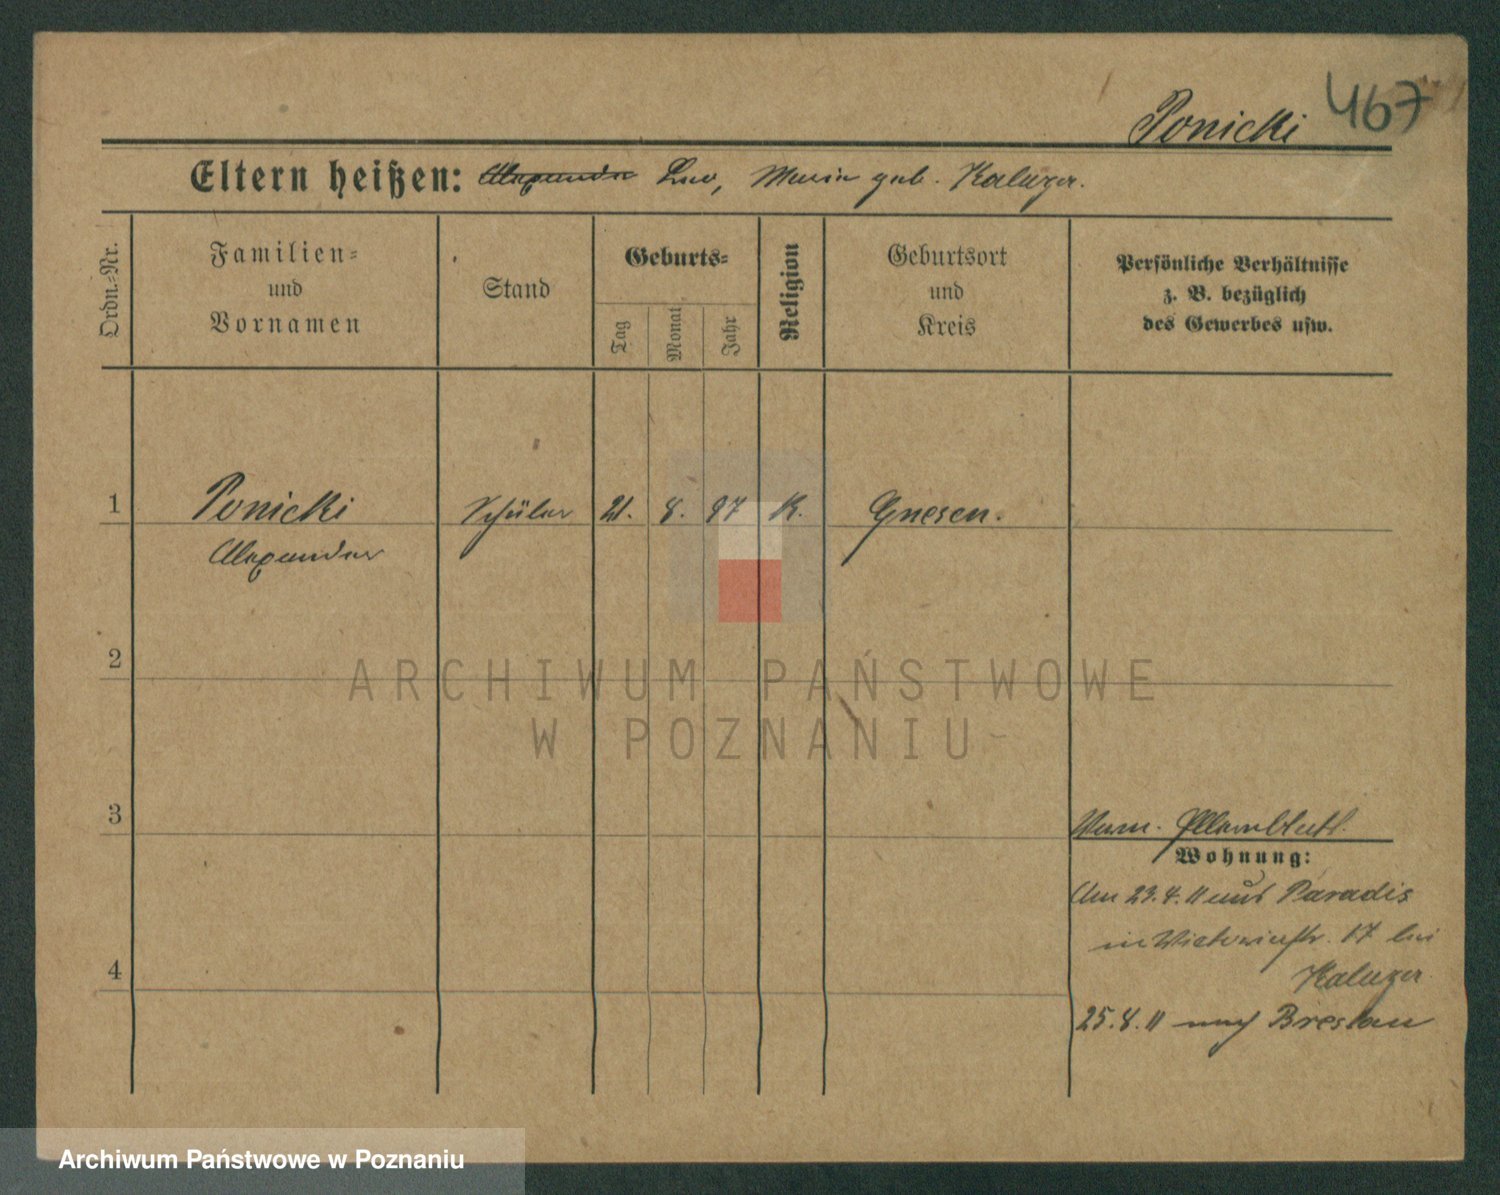 Ponicki 467
Eltern heißen: Alexander Leo, Maria geb. Kaluzer.
Ordn.-Nr.
Familien-
und
Vornamen
Stand
Geburts-
Tag
Monat
Jahr
Religion
Geburtsort
und
Kreis
Persönliche Verhältnisse
z. B. bezüglich
des Gewerbes usw.
1 Ponicki Schüler 21. 8. 97 K. Gnesen.
Alexander
2
ARCHIWUM PAŃSTWOWE
W POZNANIU
3
Wohnung:
Am 23.4.11 aus Paradis
in Victoriastr. 17 bei
Kaluzer
4
25.8.11 nach Breslau
Archiwum Państwowe w Poznaniu